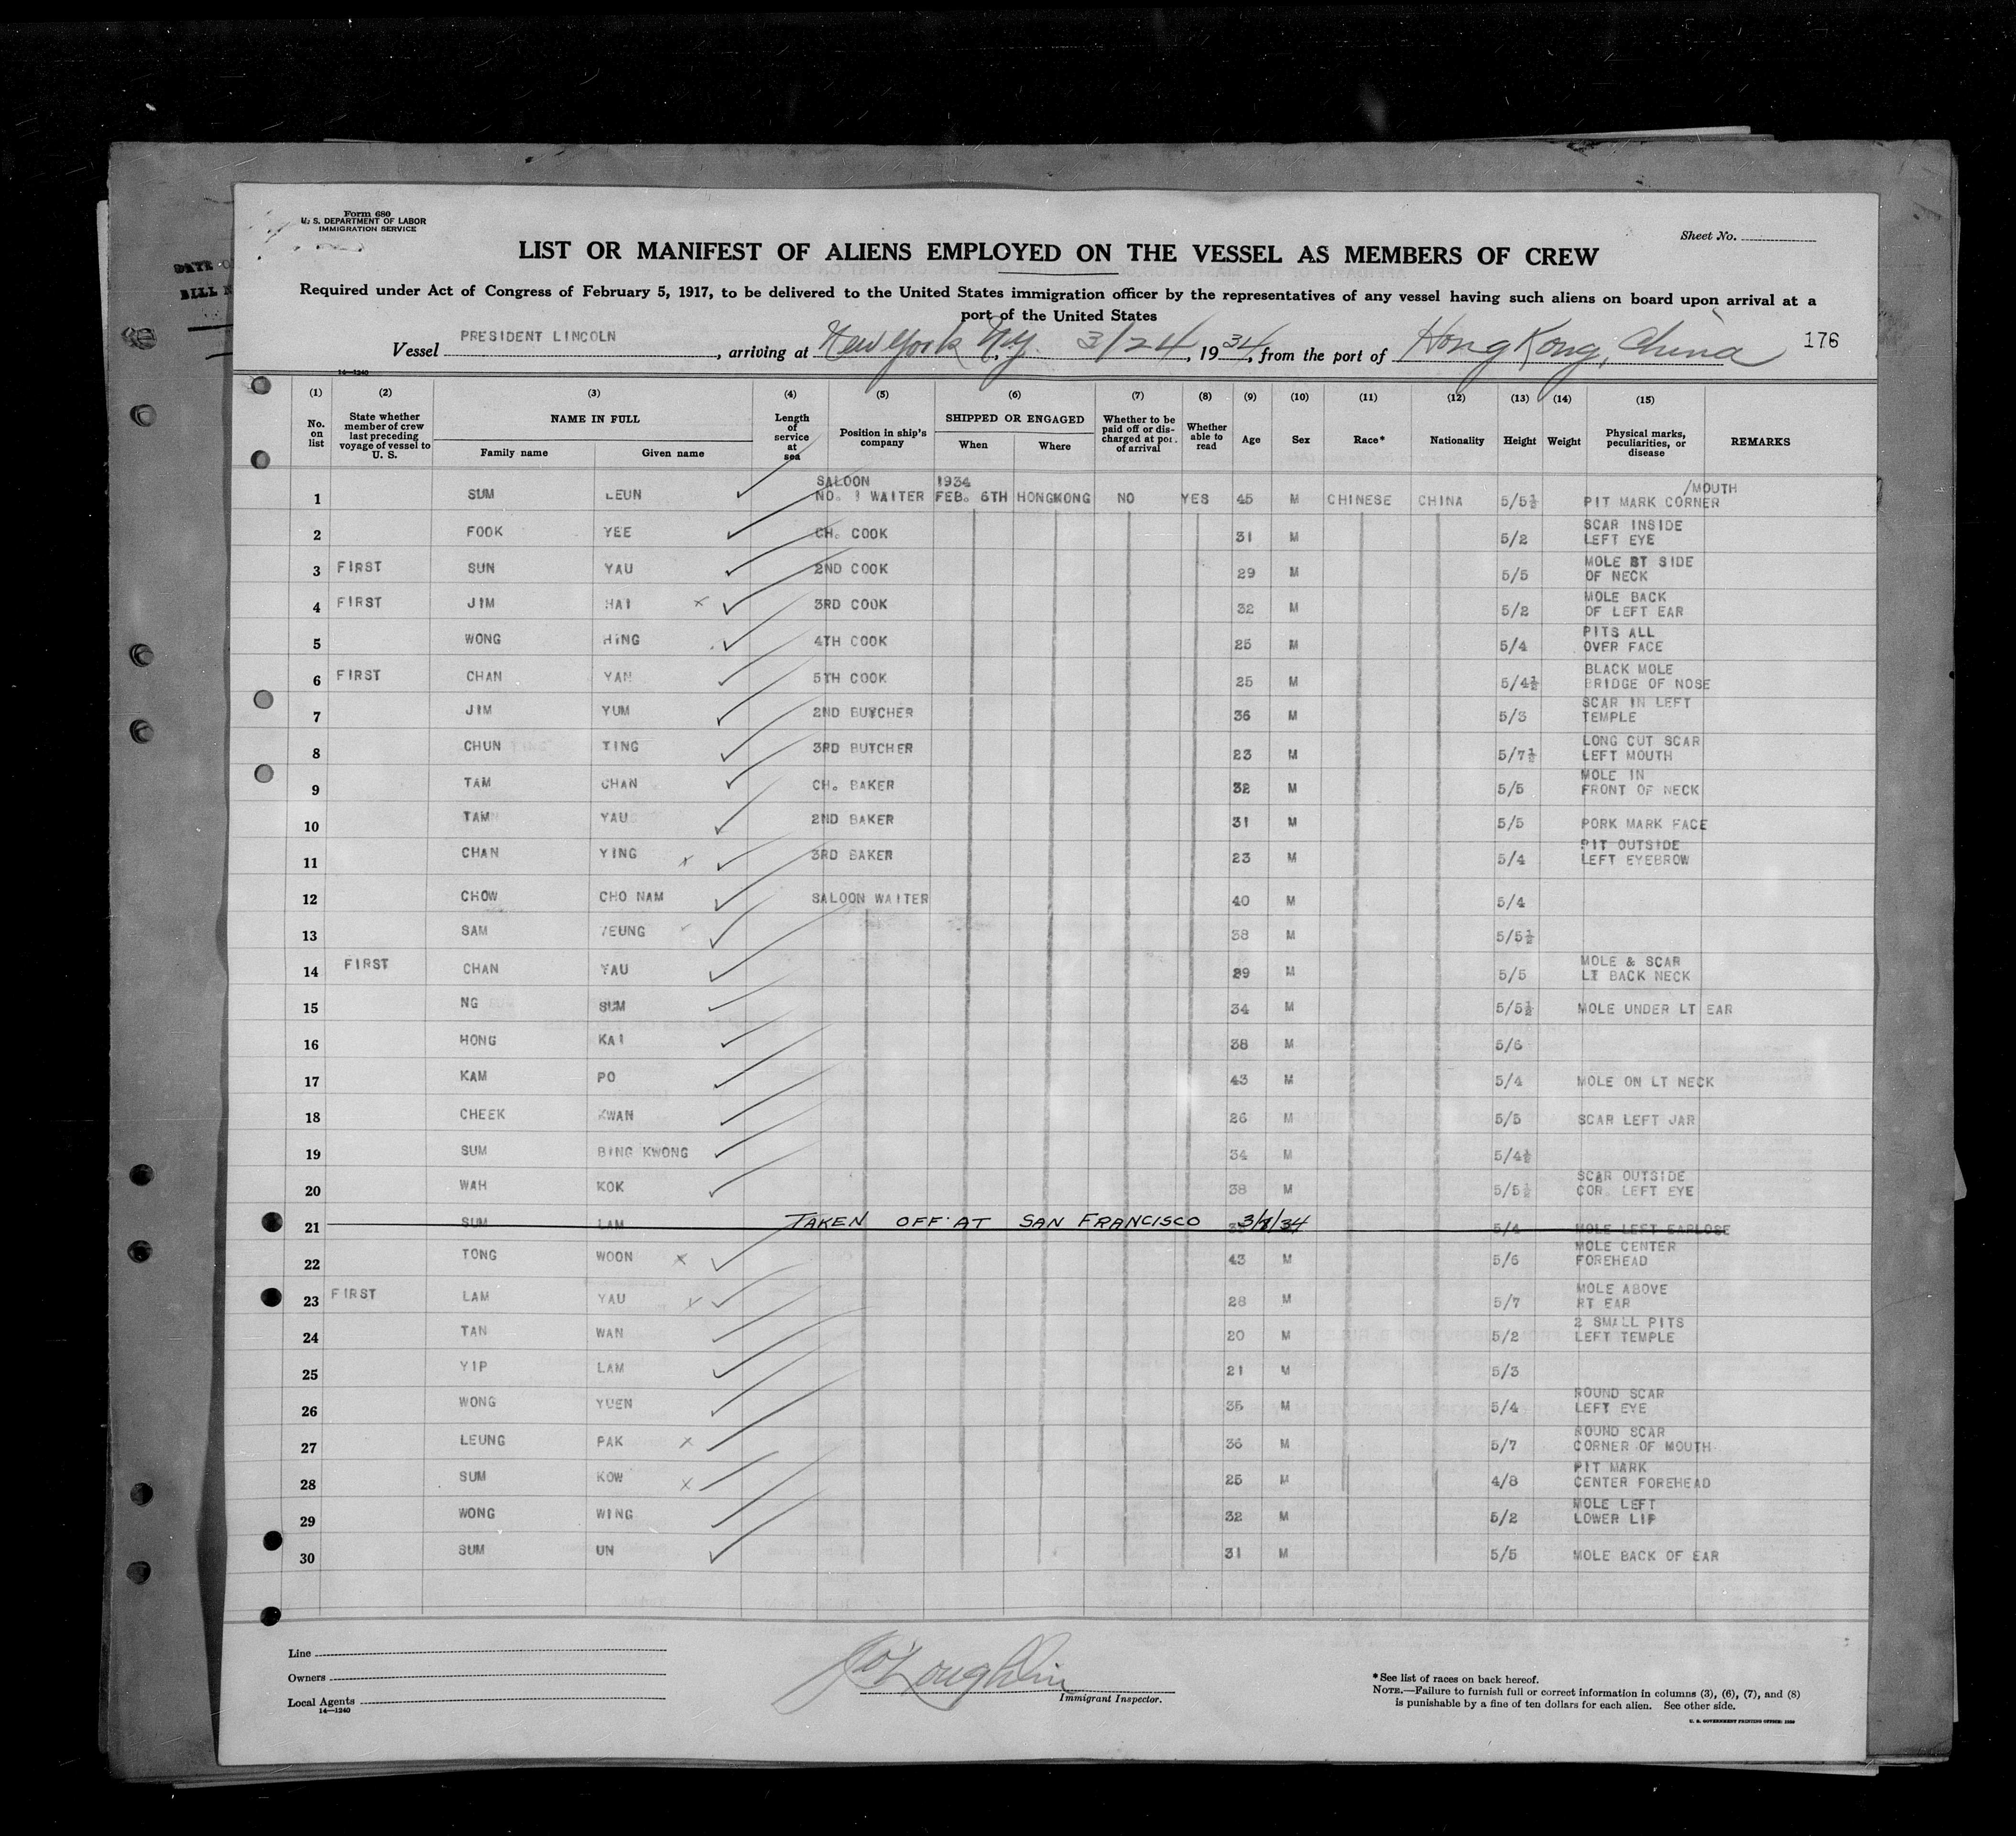 Form 680
U. S. DEPARTMENT OF LABOR
IMMIGRATION SERVICE
Sheet No.
LIST OR MANIFEST OF ALIENS EMPLOYED ON THE VESSEL AS MEMBERS OF CREW
DATE O
BILL N
Required under Act of Congress of February 5, 1917, to be delivered to the United States immigration officer by the representatives of any vessel having such aliens on board upon arrival at a
port of the United States
Vessel PRESIDENT LINCOLN, arriving at New York N.Y. 3/24, 1934, from the port of Hong Kong, China 176
14—1240
(1) (2) (3) (4) (5) (6) (7) (8) (9) (10) (11) (12) (13) (14) (15)
No. on list State whether member of crew last preceding voyage of vessel to U. S. NAME IN FULL Family name Given name Length of service at sea Position in ship's company SHIPPED OR ENGAGED When Where Whether to be paid off or discharged at port of arrival Whether able to read Age Sex Race* Nationality Height Weight Physical marks, peculiarities, or disease REMARKS
1 SUM LEUN SALOON NO. 1 WAITER 1934 FEB. 6TH HONGKONG NO YES 45 M CHINESE CHINA 5/5½ PIT MARK CORNER /MOUTH
2 FOOK YEE CH. COOK 31 M 5/2 SCAR INSIDE LEFT EYE
3 FIRST SUN YAU 2ND COOK 29 M 5/5 MOLE BT SIDE OF NECK
4 FIRST JIM HAI x 3RD COOK 32 M 5/2 MOLE BACK OF LEFT EAR
5 WONG HING 4TH COOK 25 M 5/4 PITS ALL OVER FACE
6 FIRST CHAN YAN 5TH COOK 25 M 5/4½ BLACK MOLE BRIDGE OF NOSE
7 JIM YUM 2ND BUTCHER 36 M 5/3 SCAR IN LEFT TEMPLE
8 CHUN TING 3RD BUTCHER 23 M 5/7½ LONG CUT SCAR LEFT MOUTH
9 TAM CHAN CH. BAKER 32 M 5/5 MOLE IN FRONT OF NECK
10 TAM YAU 2ND BAKER 31 M 5/5 PORK MARK FACE
11 CHAN YING x 3RD BAKER 23 M 5/4 PIT OUTSIDE LEFT EYEBROW
12 CHOW CHO NAM SALOON WAITER 40 M 5/4
13 SAM YEUNG x 38 M 5/5½
14 FIRST CHAN YAU 29 M 5/5 MOLE & SCAR LT BACK NECK
15 NG SUM 34 M 5/5½ MOLE UNDER LT EAR
16 HONG KAI 38 M 5/6
17 KAM PO 43 M 5/4 MOLE ON LT NECK
18 CHEEK KWAN 26 M 5/5 SCAR LEFT JAR
19 SUM BING KWONG 34 M 5/4½
20 WAH KOK 38 M 5/5½ SCAR OUTSIDE COR. LEFT EYE
21 SUM LAM TAKEN OFF AT SAN FRANCISCO 3/8/34 5/4 MOLE LEFT EARLOSE
22 TONG WOON x 43 M 5/6 MOLE CENTER FOREHEAD
23 FIRST LAM YAU x 28 M 5/7 MOLE ABOVE RT EAR
24 TAN WAN 20 M 5/2 2 SMALL PITS LEFT TEMPLE
25 YIP LAM 21 M 5/3
26 WONG YUEN 35 M 5/4 ROUND SCAR LEFT EYE
27 LEUNG PAK x 36 M 5/7 ROUND SCAR CORNER OF MOUTH
28 SUM KOW x 25 M 4/8 PIT MARK CENTER FOREHEAD
29 WONG WING 32 M 5/2 MOLE LEFT LOWER LIP
30 SUM UN 31 M 5/5 MOLE BACK OF EAR
Line
Owners
Local Agents
14—1240
O'Loughlin
Immigrant Inspector.
*See list of races on back hereof.
NOTE.—Failure to furnish full or correct information in columns (3), (6), (7), and (8)
is punishable by a fine of ten dollars for each alien. See other side.